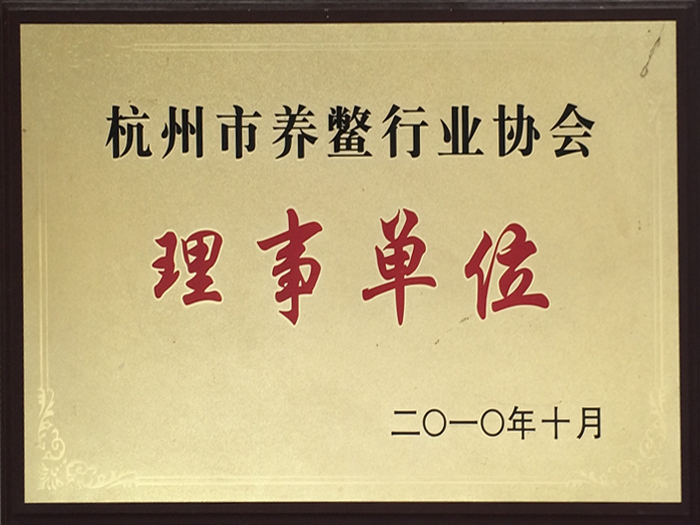 杭州市养鳖行业协会
理事单位
二〇一〇年十月